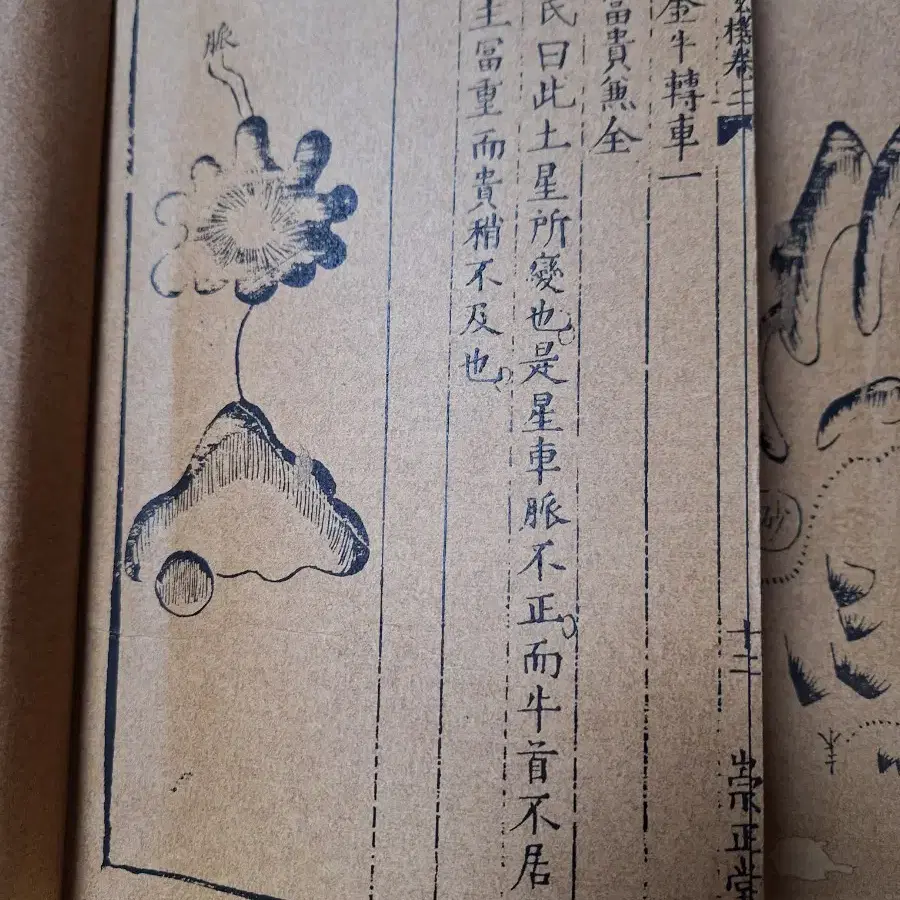 機卷二
十二
崇正堂
金牛轉車一
富貴兼全
民曰此土星所變也是星車脈不正而牛首不居
主冨重而貴稍不及也
脈
砂